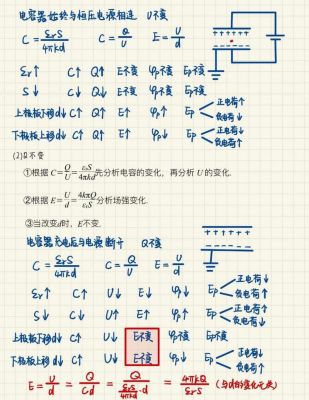 电容器始终与恒压电源相连 U不变
C = εrS/4πkd C = Q/U E = U/d
εr↑ C↑ Q↑ E不变 φp不变 Ep不变
S↓ C↓ Q↓ E不变 φp不变 Ep不变
上极板下移d↓ C↑ Q↑ E↑ φp↑ Ep 正电荷↑ 负电荷↓
下极板上移d↓ C↑ Q↑ E↑ φp↓ Ep 正电荷↓ 负电荷↑
(2)Q不变
①根据 C=Q/U=εrS/4πkd 先分析电容的变化，再分析 U 的变化.
②根据 E=U/d=4kπQ/εrS 分析场强变化.
③当改变d时, E不变.
电容器充电后与电源断开 Q不变
C = εrS/4πkd C = Q/U E = U/d
εr↑ C↑ U↓ E↓ φp↓ Ep 正电荷↓ 负电荷↑
S↓ C↓ U↑ E↑ φp↑ Ep 正电荷↑ 负电荷↓
上极板下移d↓ C↑ U↓ E不变 φp不变 Ep不变
下极板上移d↓ C↑ U↓ E不变 φp↓ Ep 正电荷↓ 负电荷↑
E = U/d = Q/Cd = Q/(εrS/4πkd · d) = 4πkQ/εrS (与d的变化无关)